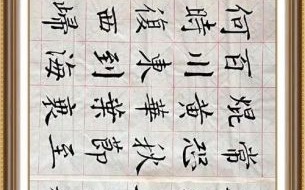 常恐秋節至
焜黄華葉衰
百川東到海
何時復西歸